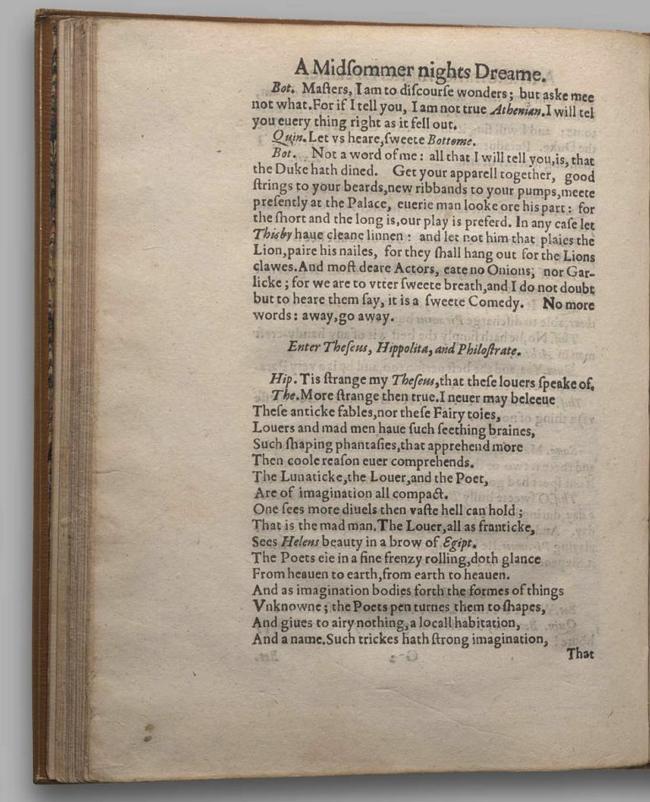 A Midſommer nights Dreame.
Bot. Maſters, I am to diſcourſe wonders; but aske mee
not what. For if I tell you, I am not true Athenian. I will tel
you euery thing right as it fell out.
Quin. Let vs heare, ſweete Bottome.
Bot. Not a word of me: all that I will tell you, is, that
the Duke hath dined. Get your apparell together, good
ſtrings to your beards, new ribbands to your pumps, meete
preſently at the Palace, euerie man looke ore his part: for
the ſhort and the long is, our play is preferd. In any caſe let
Thisby haue cleane linnen: and let not him that plaies the
Lion, paire his nailes, for they ſhall hang out for the Lions
clawes. And moſt deare Actors, eate no Onions; nor Gar-
licke; for we are to vtter ſweete breath, and I do not doubt
but to heare them ſay, it is a ſweete Comedy. No more
words: away, go away.
Enter Theſeus, Hippolita, and Philoſtrate.
Hip. Tis ſtrange my Theſeus, that theſe louers ſpeake of.
The. More ſtrange then true. I neuer may beleeue
Theſe anticke fables, nor theſe Fairy toies,
Louers and mad men haue ſuch ſeething braines,
Such ſhaping phantaſies, that apprehend more
Then coole reaſon euer comprehends.
The Lunaticke, the Louer, and the Poet,
Are of imagination all compact.
One ſees more diuels then vaſte hell can hold;
That is the mad man. The Louer, all as franticke,
Sees Helens beauty in a brow of Egipt.
The Poets eie in a fine frenzy rolling, doth glance
From heauen to earth, from earth to heauen.
And as imagination bodies forth the formes of things
Vnknowne; the Poets pen turnes them to ſhapes,
And giues to airy nothing, a locall habitation,
And a name. Such trickes hath ſtrong imagination,
That